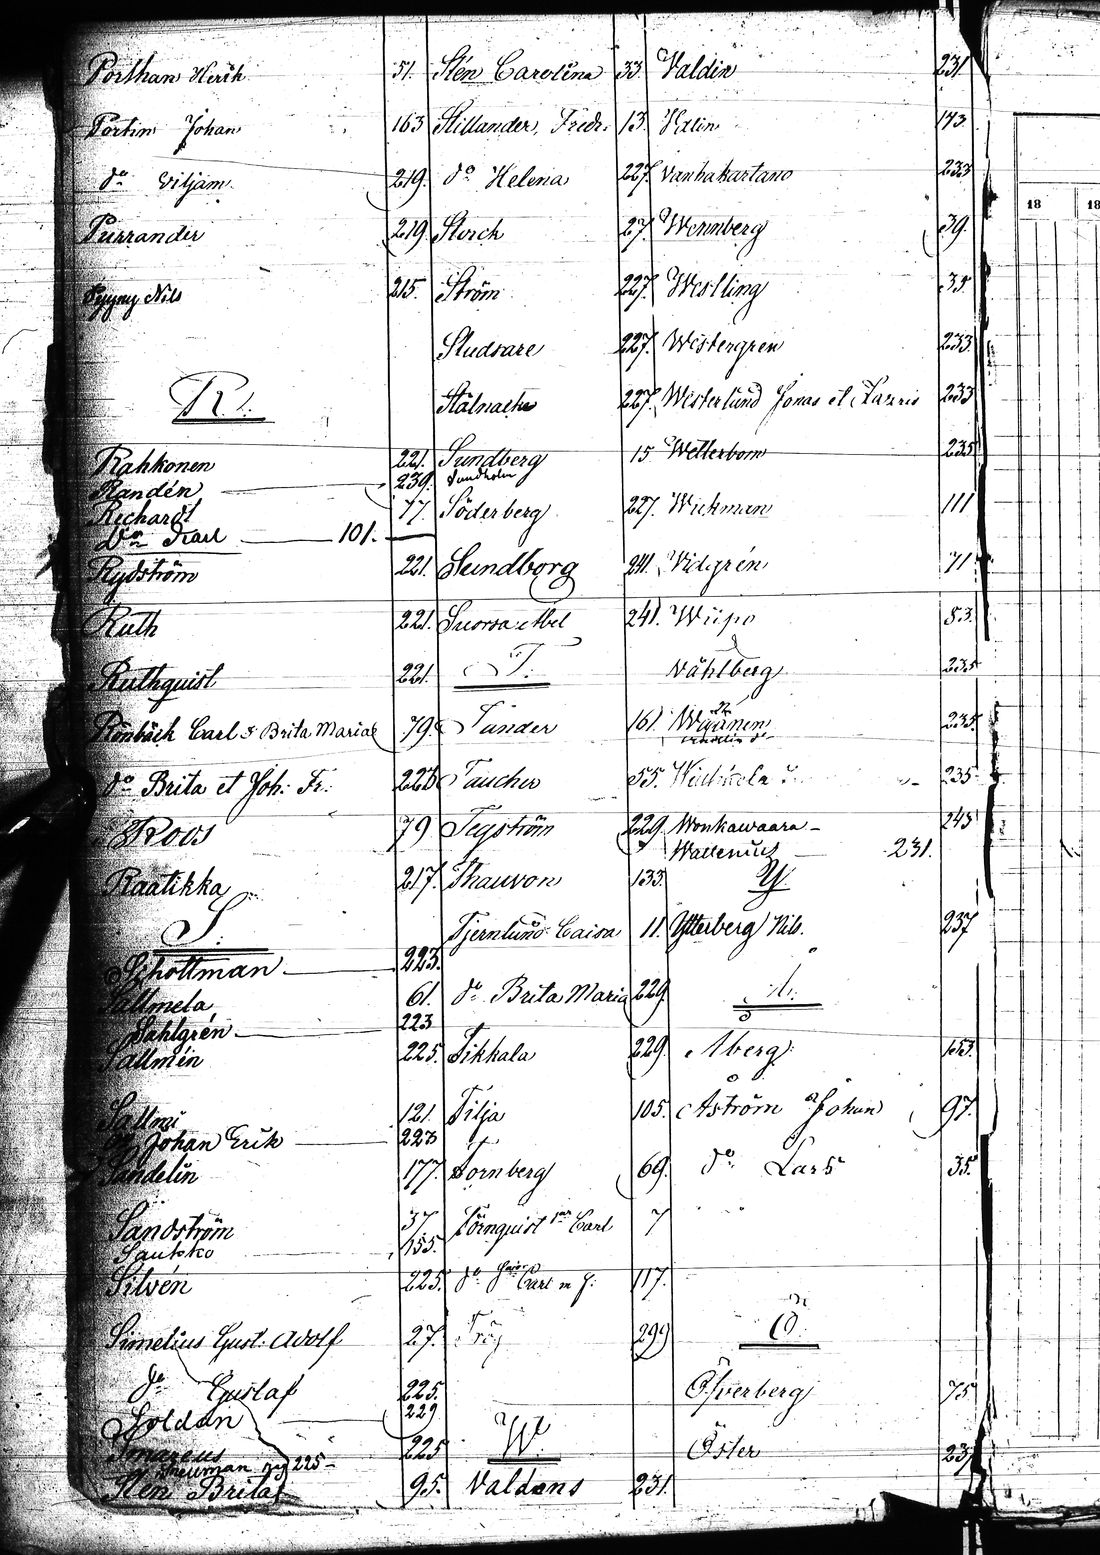 Porthan Henrik 51.
Portin Johan 163
do Viljam. 219.
Purrander 219
Pyyny Nils 215.
R.
Rahkonen 221.
Randén 239.
Richardt 77.
do Karl 101.
Rydström 221.
Ruth 221.
Ruthquist 221.
Rönbäck Carl & Brita Maria 79
do Brita et Joh. Fr. 223
Roos 79
Raatikka 217.
S.
Schottman 223.
Sallmela 61.
Sahlgrén 223
Sallmén 225.
Sallmi 121.
do Johan Erik 223
Sandelin 177.
Sandström 37
Saukko 155.
Silvén 225.
Simelius Gust. Adolf 27.
do Gustaf 225.
Soldan 229
Smareus 225
Sneuman 225
Stén Brita 95.
Stén Carolina 33.
Stillander, Fredr. 13.
do Helena 227.
Storch 27.
Ström 227.
Studsare 227.
Stålnacke 227.
Sundberg 15
Sundholm
Söderberg 227.
Sundborg 241.
Suorsa Abel 241.
T.
Tander 161.
Taucher 55.
Tegström 229
Thauvon 133.
Tjernlund Caisa 11.
do Brita Maria 229
Tikkala 229.
Tilja 105.
Tornberg 69.
Törnquist Carl 7
do Carl 117.
Tröj 299
W.
Valdans 231.
Valdin 231.
Valin 173.
Vanhakartano 233
Wennberg 39.
Westling 35
Westergren 233
Westerlund Jonas et Karris 233
Wetterbom 235
Wickman 111
Vidgrén 71
Wiipo 83.
Våhlberg 235
Wäänen 235.
235
Wonkawaara 245
Wallenius 231.
Y.
Ytterberg Nils. 237
Å.
Åberg. 153.
Åström Johan 97.
do Lars 35.
Ö.
Öfverberg 75
Öster 237
18 18